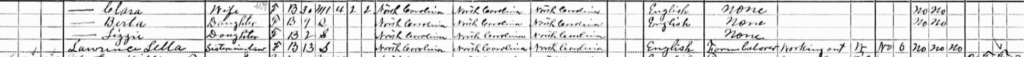 — Clara Wife F B 30 M1 4 2 2 North Carolina North Carolina North Carolina English None No No
— Berta Daughter F B 7 S North Carolina North Carolina North Carolina English None No No
— Lizzie Daughter F B 2 S North Carolina North Carolina North Carolina None
Lawrence Lella Sister in law F B 13 S North Carolina North Carolina North Carolina English Farm Laborer Working out W No 0 No No No